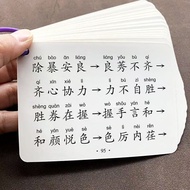 chú bào ān liáng liáng yǒu bù qí
除暴安良→良莠不齐→
qí xīn xié lì lì bú shèng
齐心协力→力不自胜→
shèng quàn zài wò wò shǒu yán hé
胜券在握→握手言和→
hé yán yuè sè sè lì nèi rěn
和颜悦色→色厉内荏→
·95·